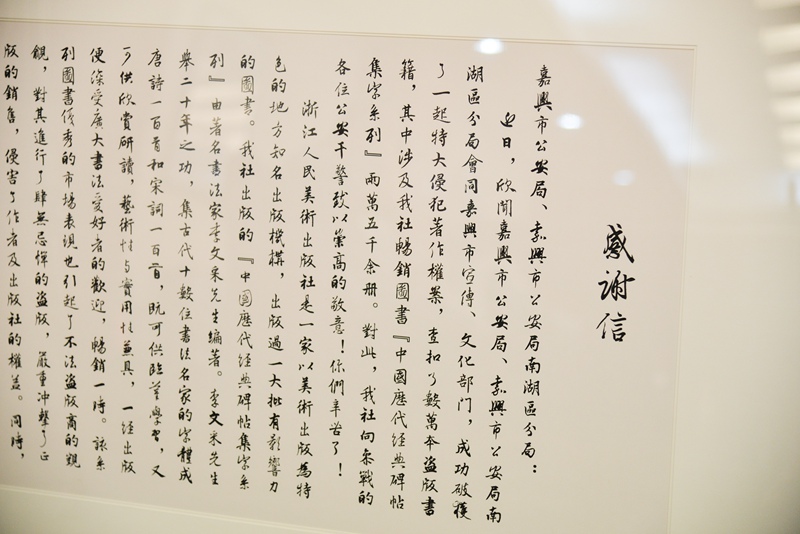 感谢信
嘉興市公安局、嘉興市公安局南湖區分局：
近日，欣聞嘉興市公安局、嘉興市公安局南
湖區分局會同嘉興市宣傳、文化部門，成功破獲
了一起特大侵犯著作權案，查扣了數萬本盜版書
籍，其中涉及我社暢銷圖書『中國歷代经典碑帖
集字系列』兩萬五千余册。對此，我社向參戰的
各位公安干警致以崇高的敬意！你們辛苦了！
浙江人民美術出版社是一家以美術出版為特
色的地方知名出版機構，出版過一大批有影響力
的圖書。我社出版的『中國歷代经典碑帖集字系
列』由著名書法家李文采先生編著。李文采先生
舉二十年之功，集古代十數位書法名家的字體成
唐詩一百首和宋詞一百首，既可供臨習學習，又
可供欣賞研讀，藝術性与實用性兼具，一经出版
便深受廣大書法爱好者的歡迎，暢銷一時。該系
列圖書优秀的市場表現也引起了不法盜版商的覬
覦，對其進行了肆無忌憚的盜版，嚴重冲擊了正
版的銷售，侵害了作者及出版社的權益。同時，